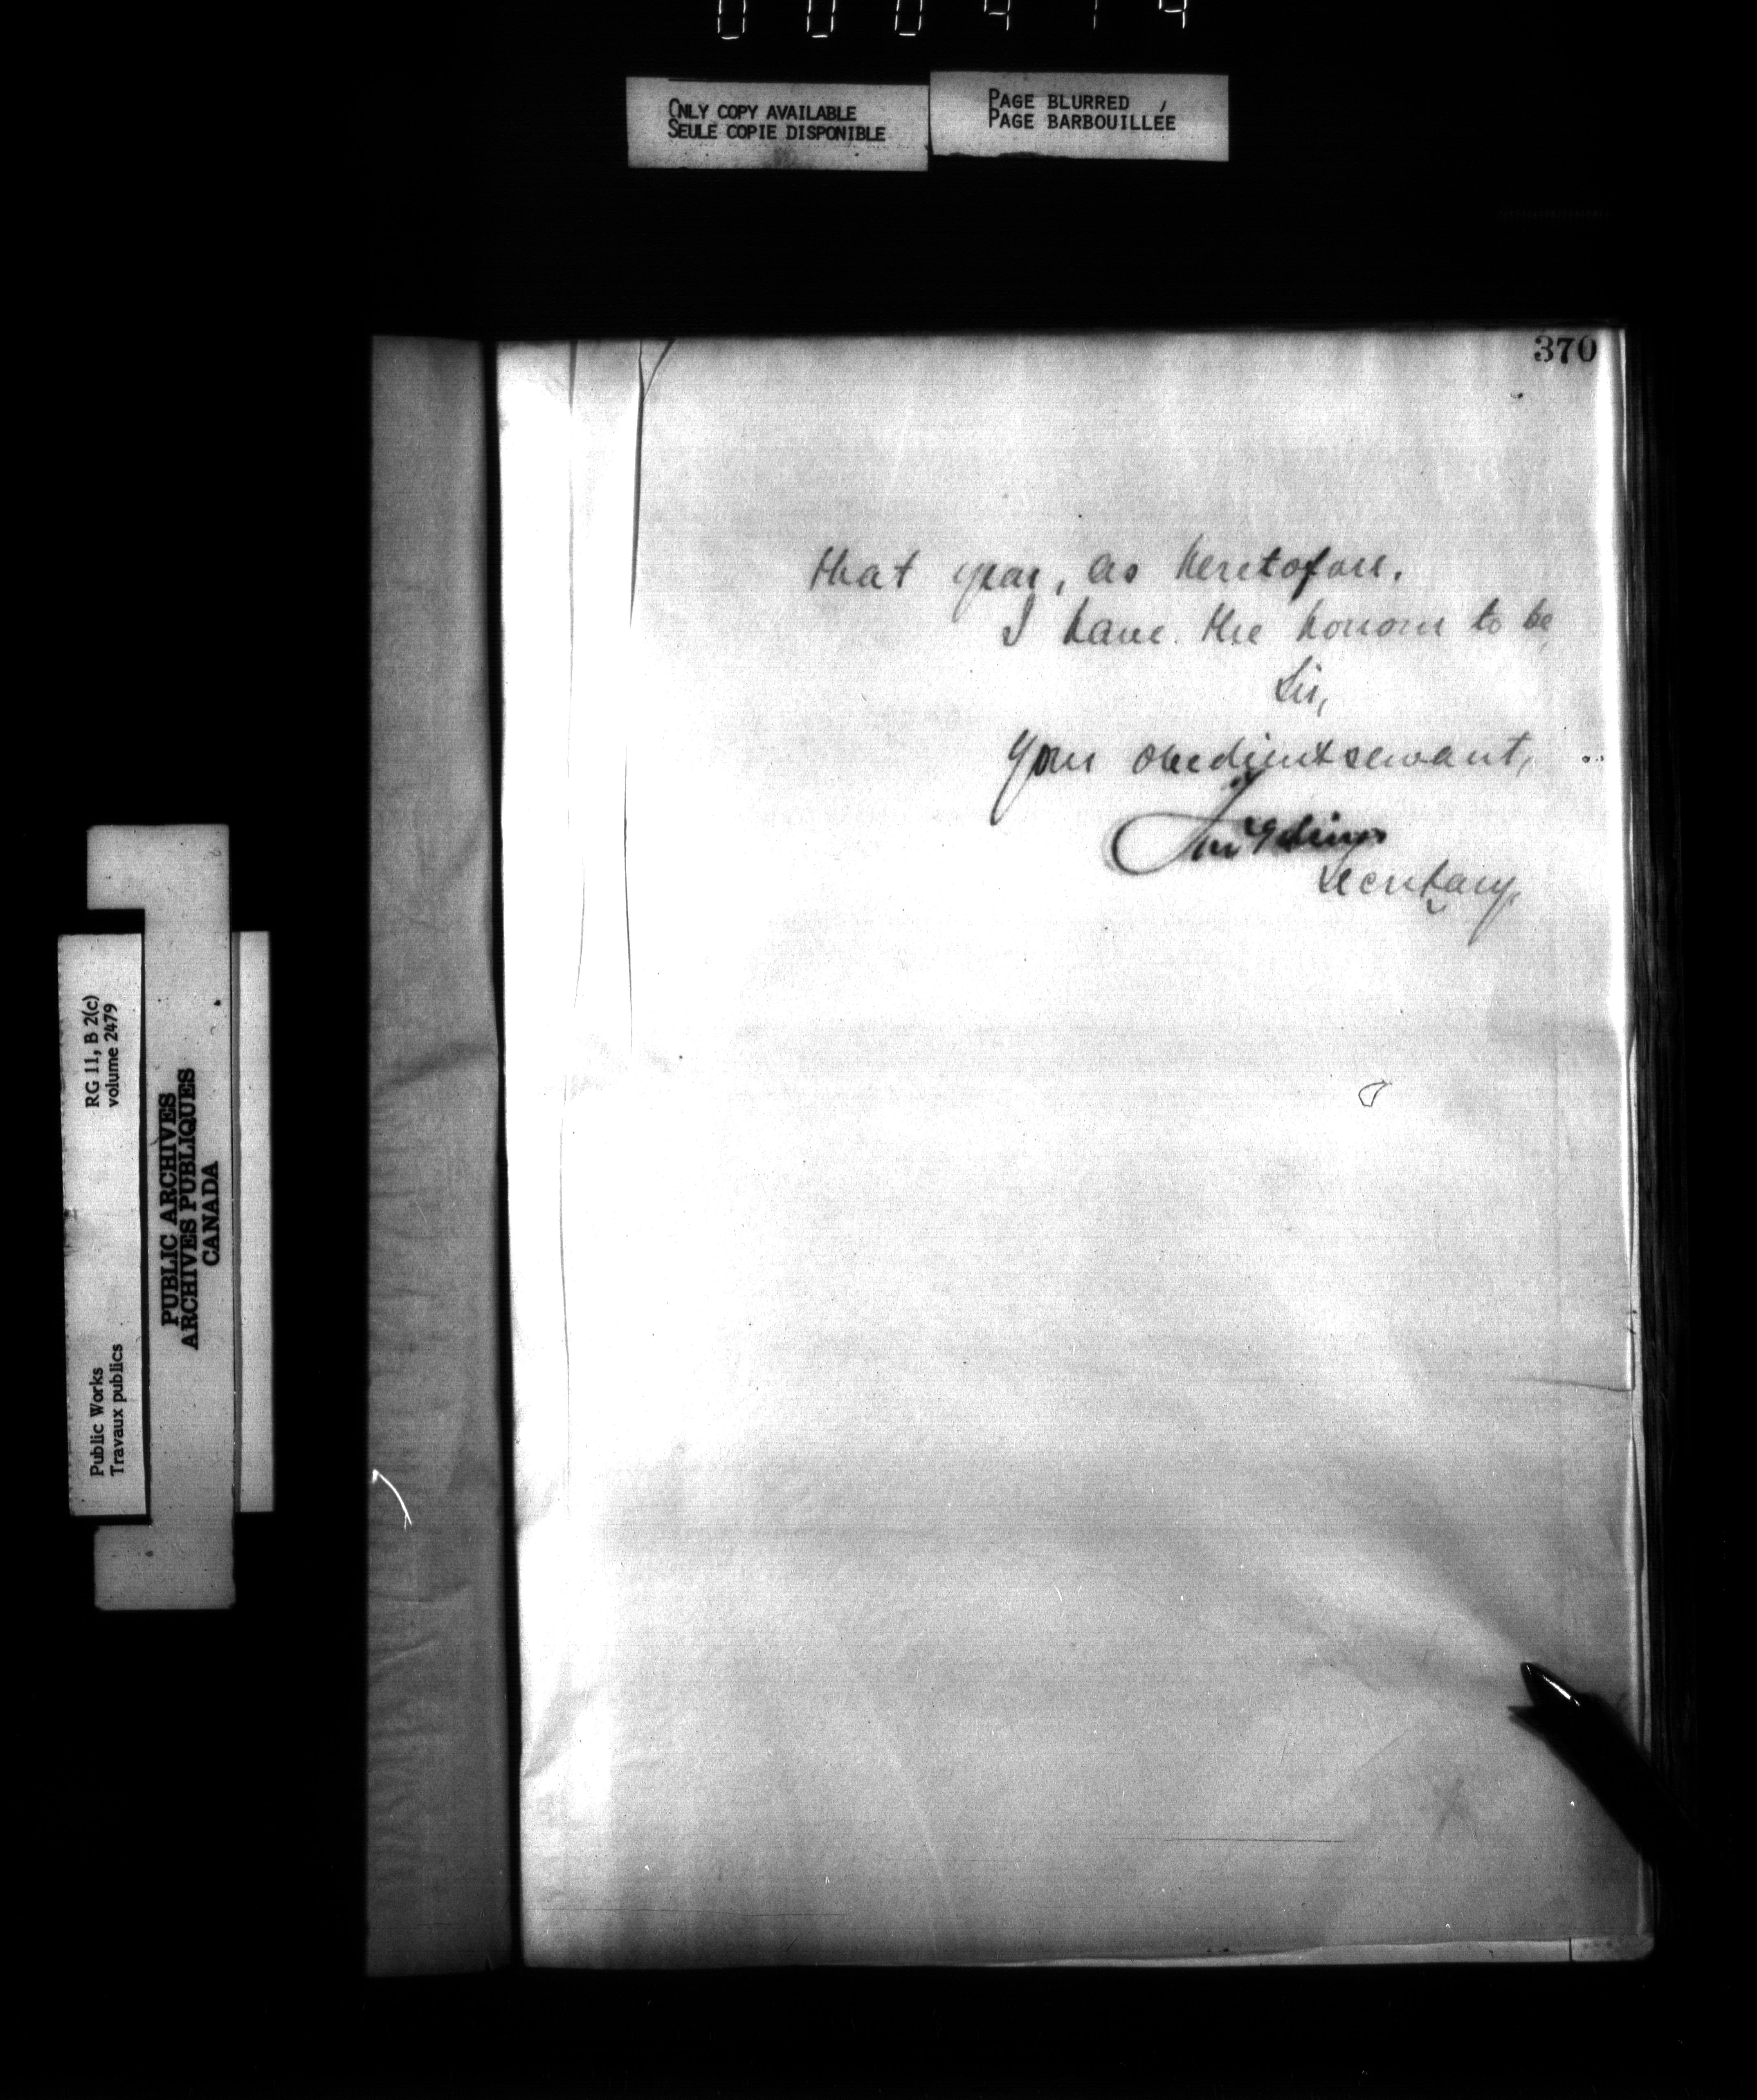 ONLY COPY AVAILABLE
SEULE COPIE DISPONIBLE
PAGE BLURRED
PAGE BARBOUILLÉE
370
that year, as heretofore.
I have the honour to be,
Sir,
Your obedient servant,
Secretary.
RG 11, B 2(c)
volume 2479
Public Works
Travaux publics
PUBLIC ARCHIVES
ARCHIVES PUBLIQUES
CANADA